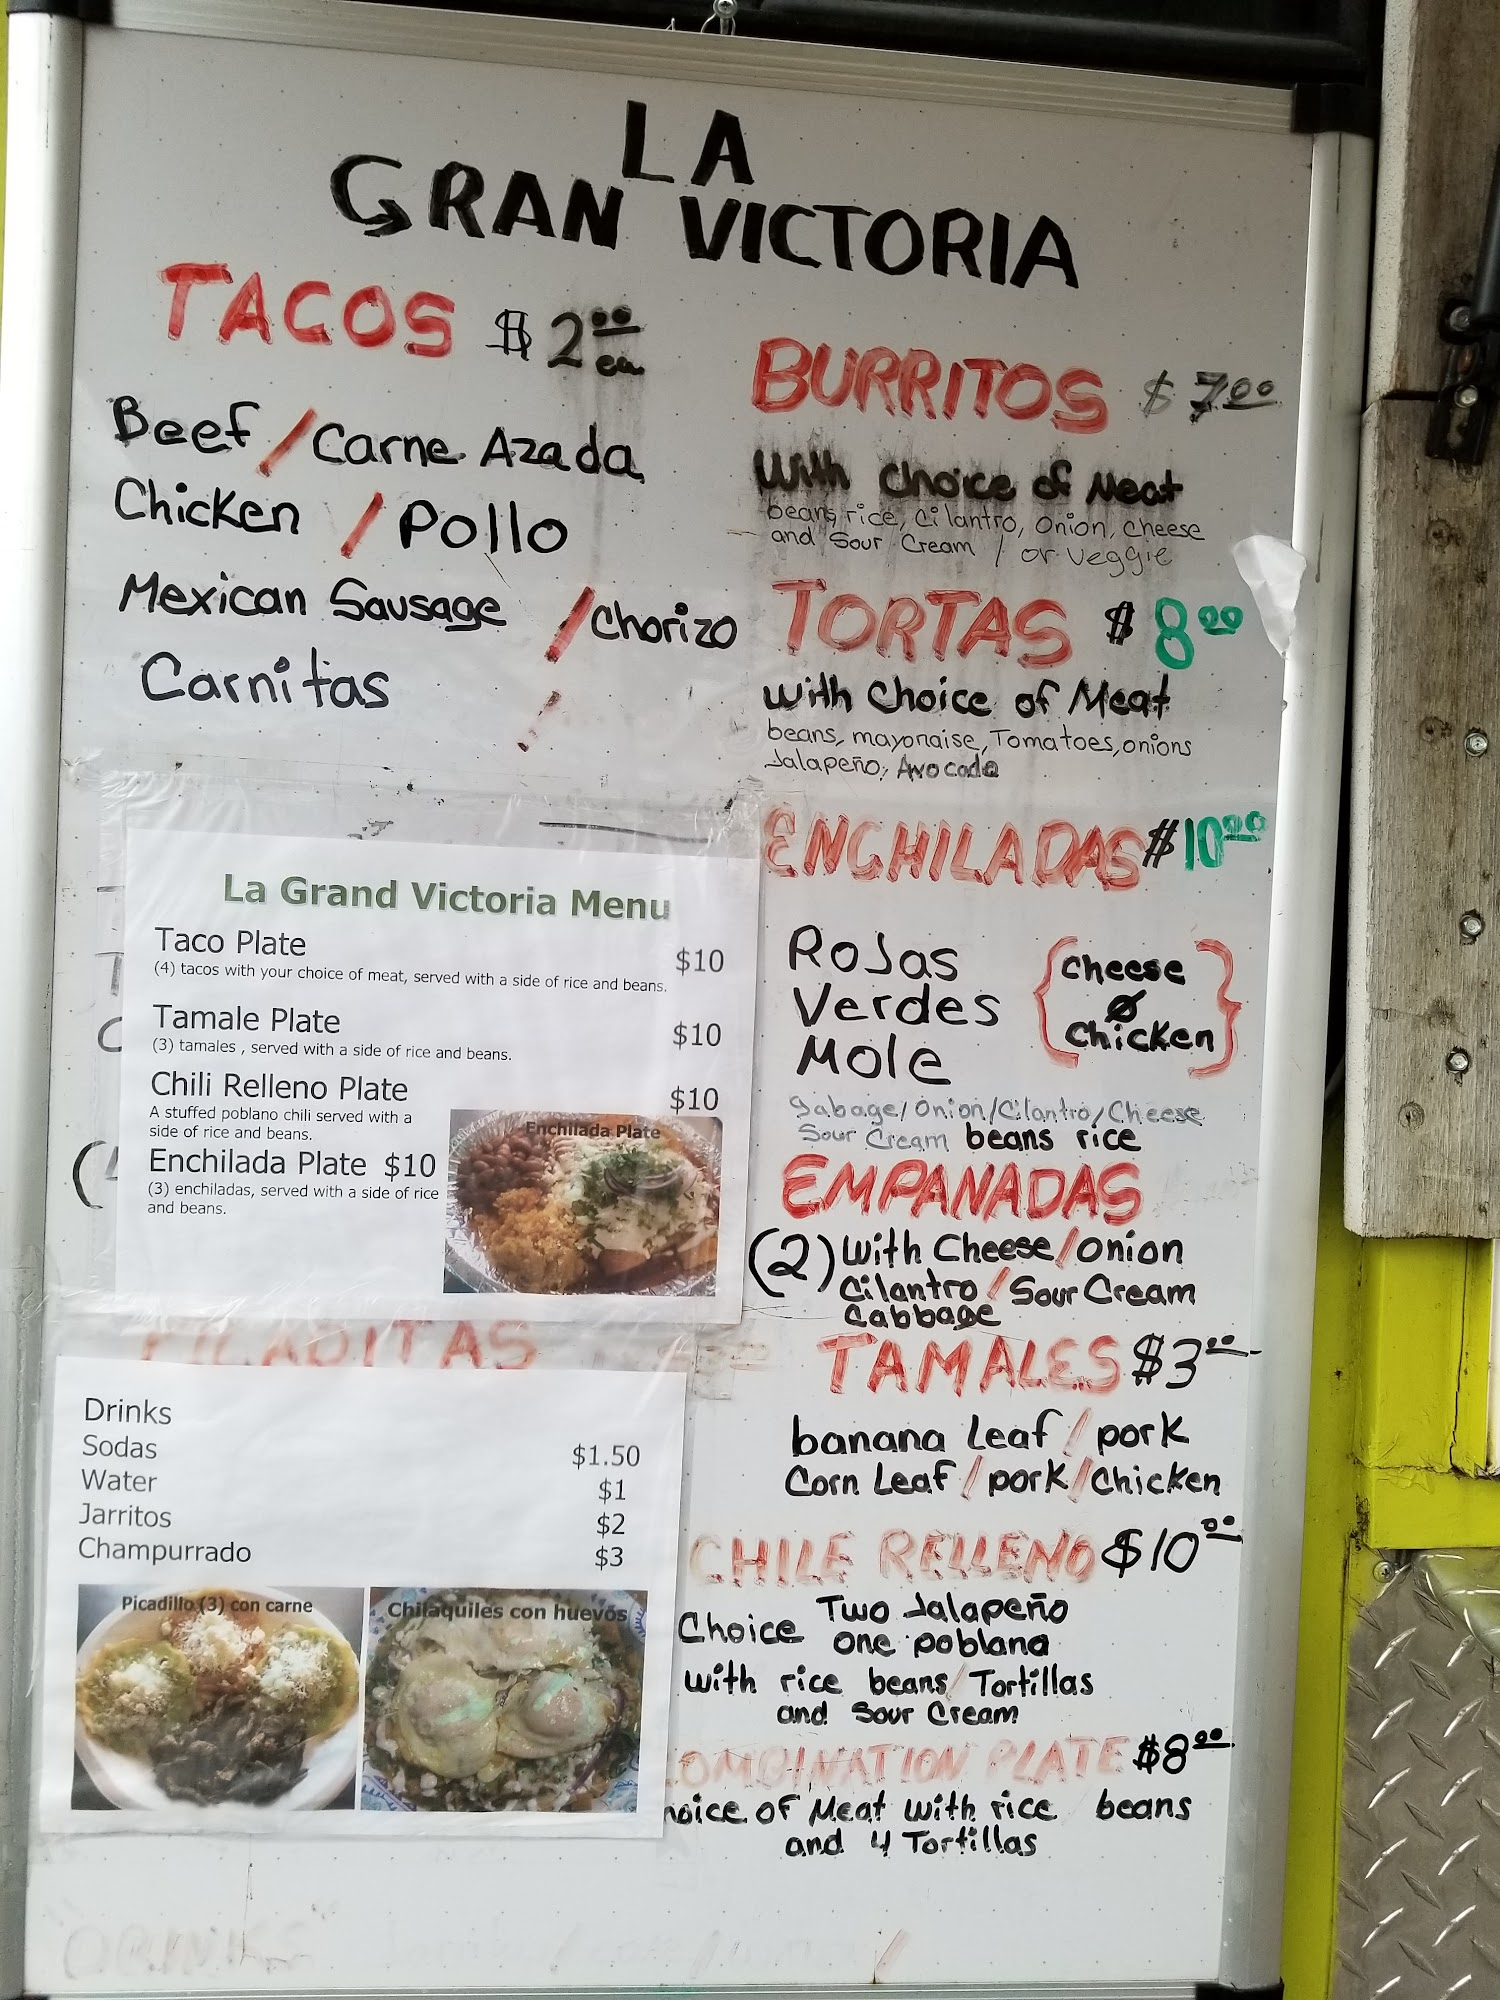 LA
GRAN VICTORIA
TACOS $2.00 ea
Beef / Carne Azada
Chicken / Pollo
Mexican Sausage / Chorizo
Carnitas /
La Grand Victoria Menu
Taco Plate $10
(4) tacos with your choice of meat, served with a side of rice and beans.
Tamale Plate $10
(3) tamales , served with a side of rice and beans.
Chili Relleno Plate $10
A stuffed poblano chili served with a
side of rice and beans.
Enchilada Plate $10
(3) enchiladas, served with a side of rice
and beans.
Enchilada Plate
PICADITAS
Drinks
Sodas $1.50
Water $1
Jarritos $2
Champurrado $3
Picadillo (3) con carne
Chilaquiles con huevos
BURRITOS $7.00
With choice of Meat
beans, rice, Cilantro, Onion, Cheese
and Sour Cream / or Veggie
TORTAS $8.00
with Choice of Meat
beans, mayonaise, Tomatoes, onions
Jalapeño, Avocado
ENCHILADAS $10.00
Rojas
Verdes
Mole
{Cheese
O
Chicken}
gabage/Onion/Cilantro/Cheese
Sour Cream beans rice
EMPANADAS
(2) with Cheese/onion
Cilantro/Sour Cream
Cabbage
TAMALES $3.00
banana Leaf / pork
Corn Leaf / pork / Chicken
CHILE RELLENO $10.00
Choice Two Jalapeño
one poblana
with rice beans/Tortillas
and Sour Cream
OMBINATION PLATE $8.00
hoice of Meat with rice beans
and 4 Tortillas
"DRINKS"